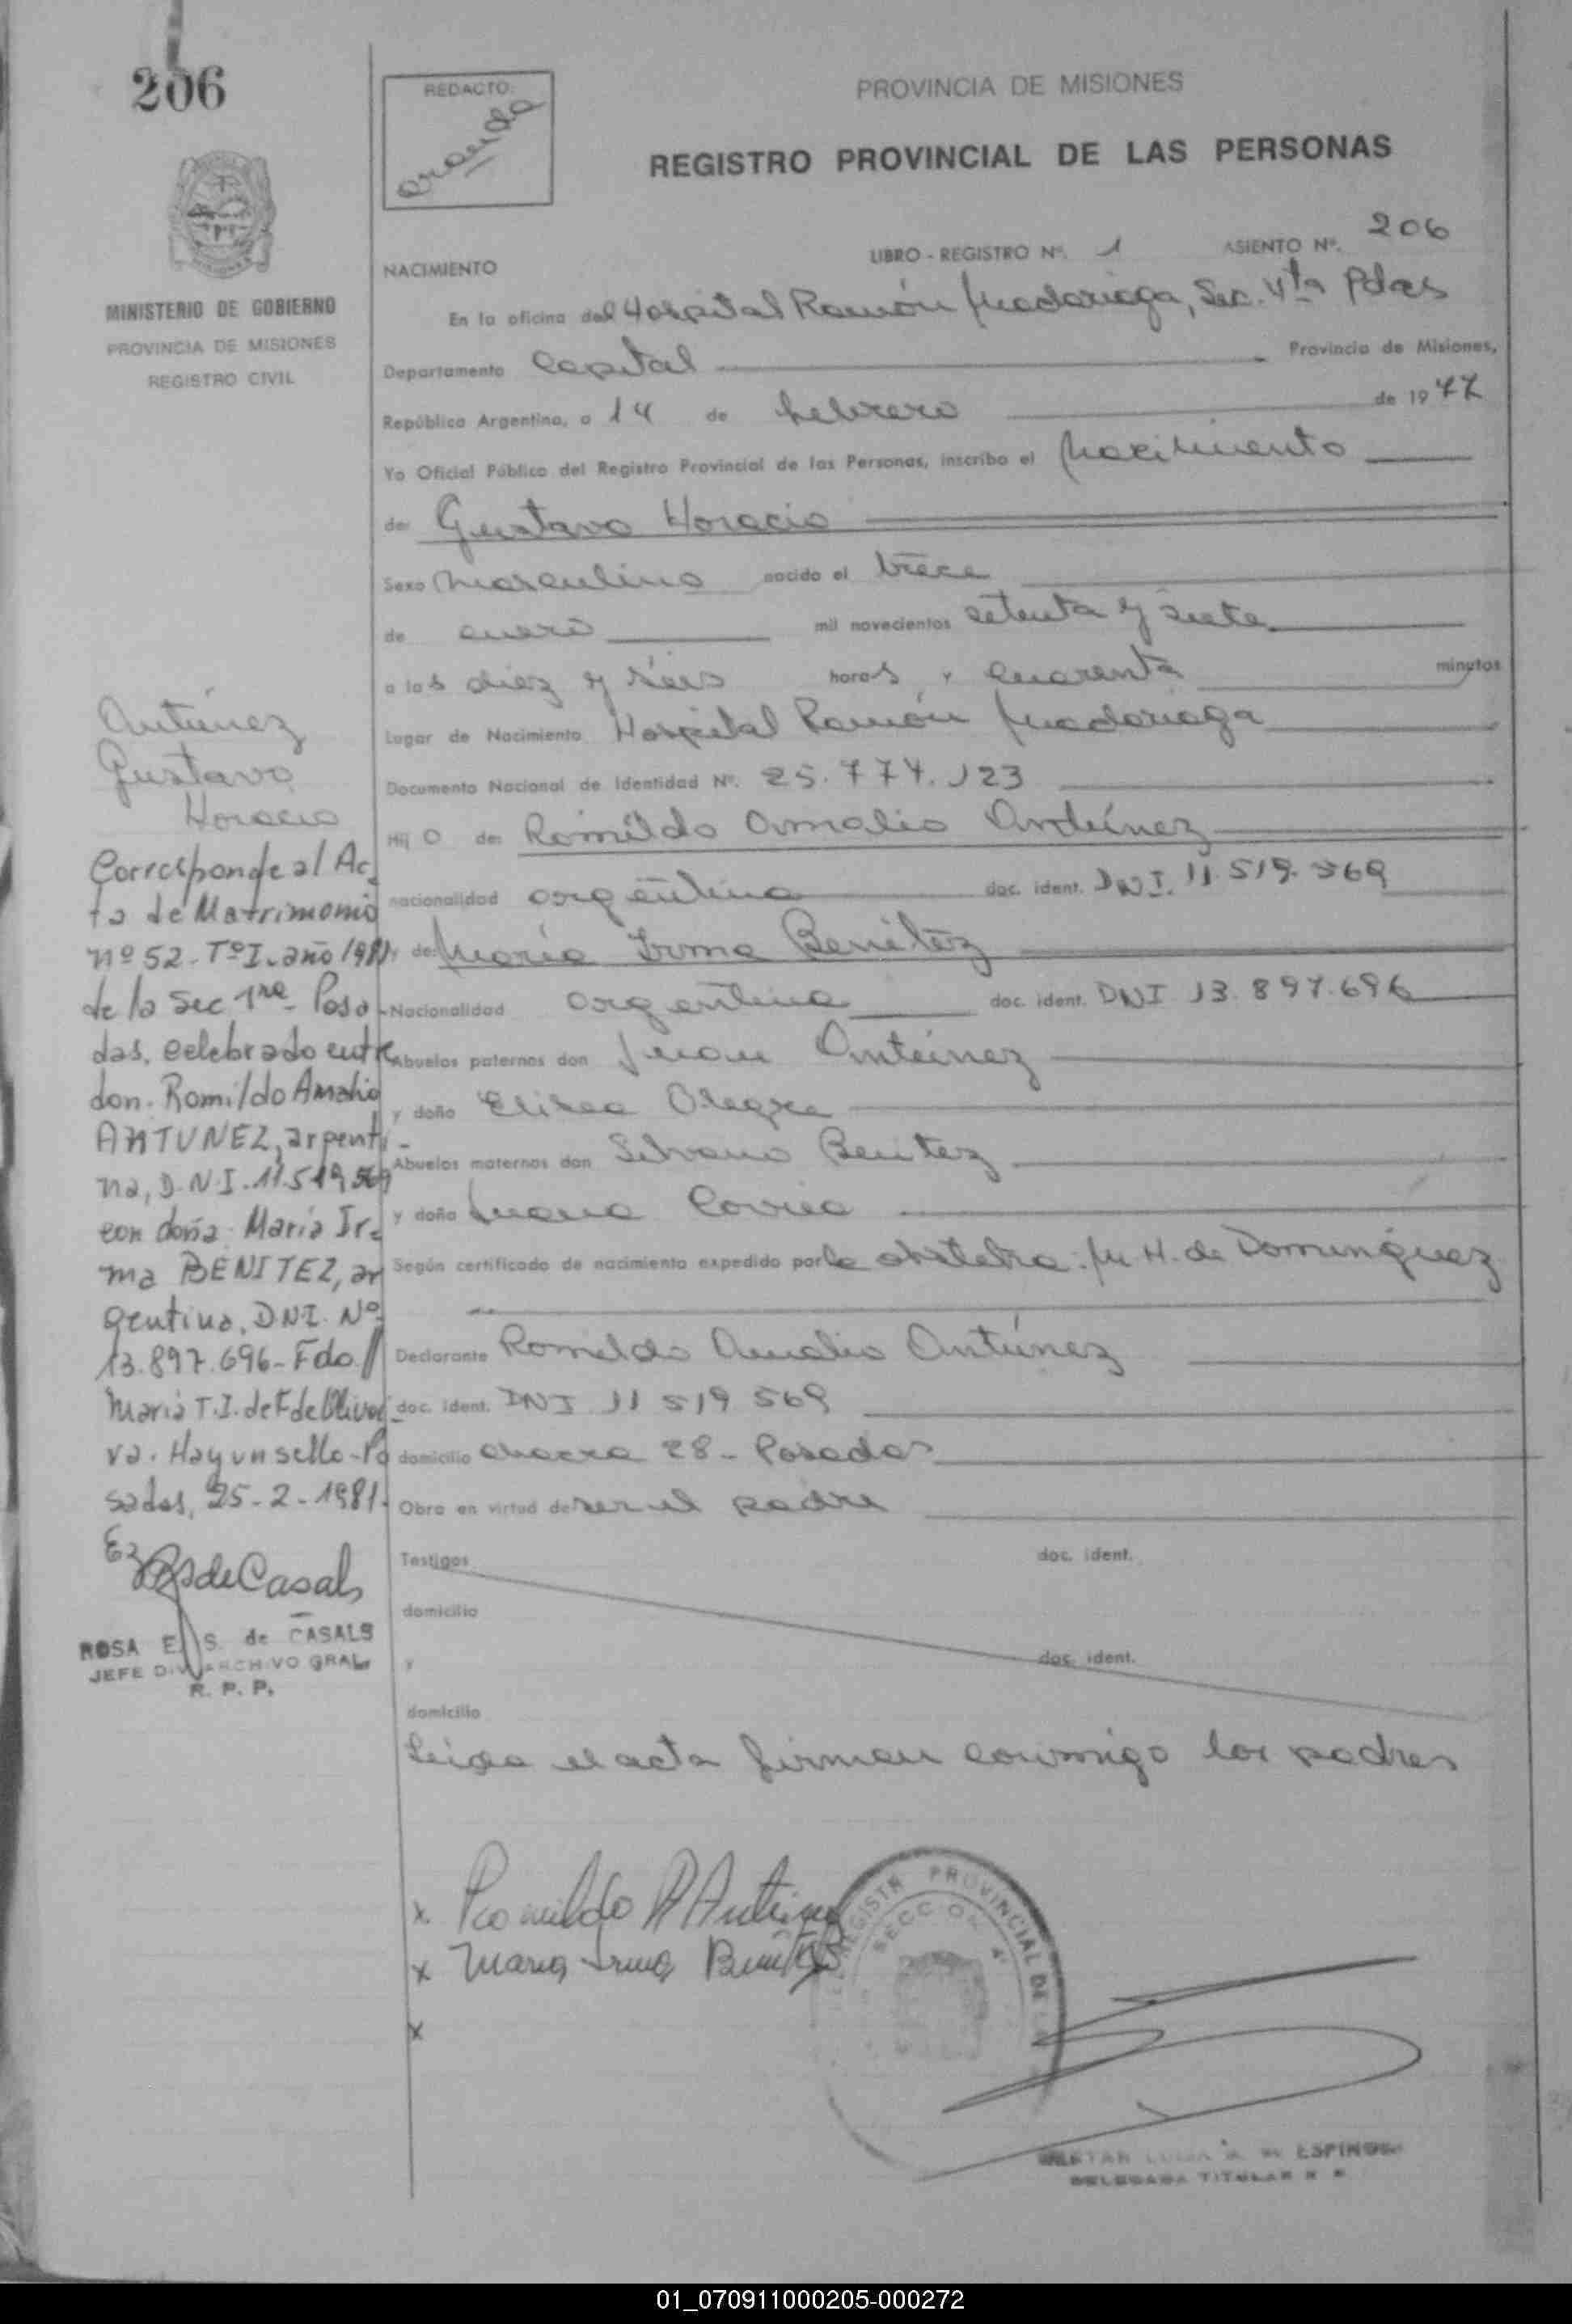 206
REDACTO:
PROVINCIA DE MISIONES
REGISTRO PROVINCIAL DE LAS PERSONAS
MINISTERIO DE GOBIERNO
PROVINCIA DE MISIONES
REGISTRO CIVIL
NACIMIENTO
LIBRO - REGISTRO Nº. 1 ASIENTO Nº. 206
En la oficina del Hospital Ramón Madariaga, Sec. 4ta Pdas
Departamento Capital Provincia de Misiones,
República Argentina, a 14 de febrero de 1977
Yo Oficial Público del Registro Provincial de las Personas, inscribo el Nacimiento
de: Gustavo Horacio
Sexo Masculino nacido el trece
de enero mil novecientos setenta y siete
a las diez y seis horas y cuarenta minutos
Lugar de Nacimiento Hospital Ramón Madariaga
Documento Nacional de Identidad Nº. 25.774.123
Hij o de: Romildo Amalio Antúnez
nacionalidad argentina doc. ident. DNI. 11.519.569
y de: María Irma Benítez
Nacionalidad argentina doc. ident. DNI 13.897.696
Abuelos paternos don Juan Antúnez
y doña Elisea Alegre
Abuelos maternos don Silvano Benitez
y doña Juana Correa
Según certificado de nacimiento expedido por la obstetra: M. H. de Dominguez
Declarante Romildo Amalio Antúnez
doc. ident. DNI 11 519 569
domicilio chacra 28 - Posadas
Obra en virtud de ser el padre
Testigos doc. ident.
domicilio
y doc. ident.
domicilio
Leida el acta firman conmigo los padres
Antúnez
Gustavo
Horacio
Corresponde al Ac-
ta de Matrimonio
nº 52 - Tº I. año 1981
de la Sec 1ra Posa-
das, celebrado entre
don. Romildo Amalio
ANTUNEZ, argenti-
na, D.N.I. 11.519.569
con doña María Ir-
ma BENITEZ, ar
gentina, D.N.I. Nº
13.897.696 - Fdo //
Maria T.I. de F. de Olivei-
ra. Hay un sello - Po
sadas, 25-2-1981.
de Casals
ROSA E. S. de CASALS
JEFE DIV ARCHIVO GRAL.
R. P. P.
x Romildo A Antunez
x Maria Irma Benitez
x
REGISTR PROVINCIAL DE
SECCION 4ª
ESPINOSA
DELEGADA TITULAR
01_070911000205-000272